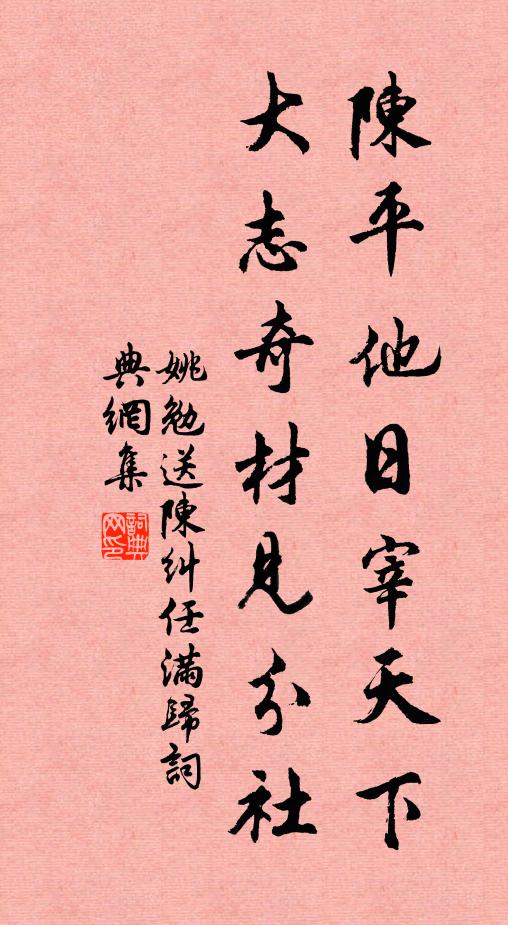 陳平他日宰天下
大志奇材見分社
姚勉送陳糾任滿歸詞
典網集
詞典網印